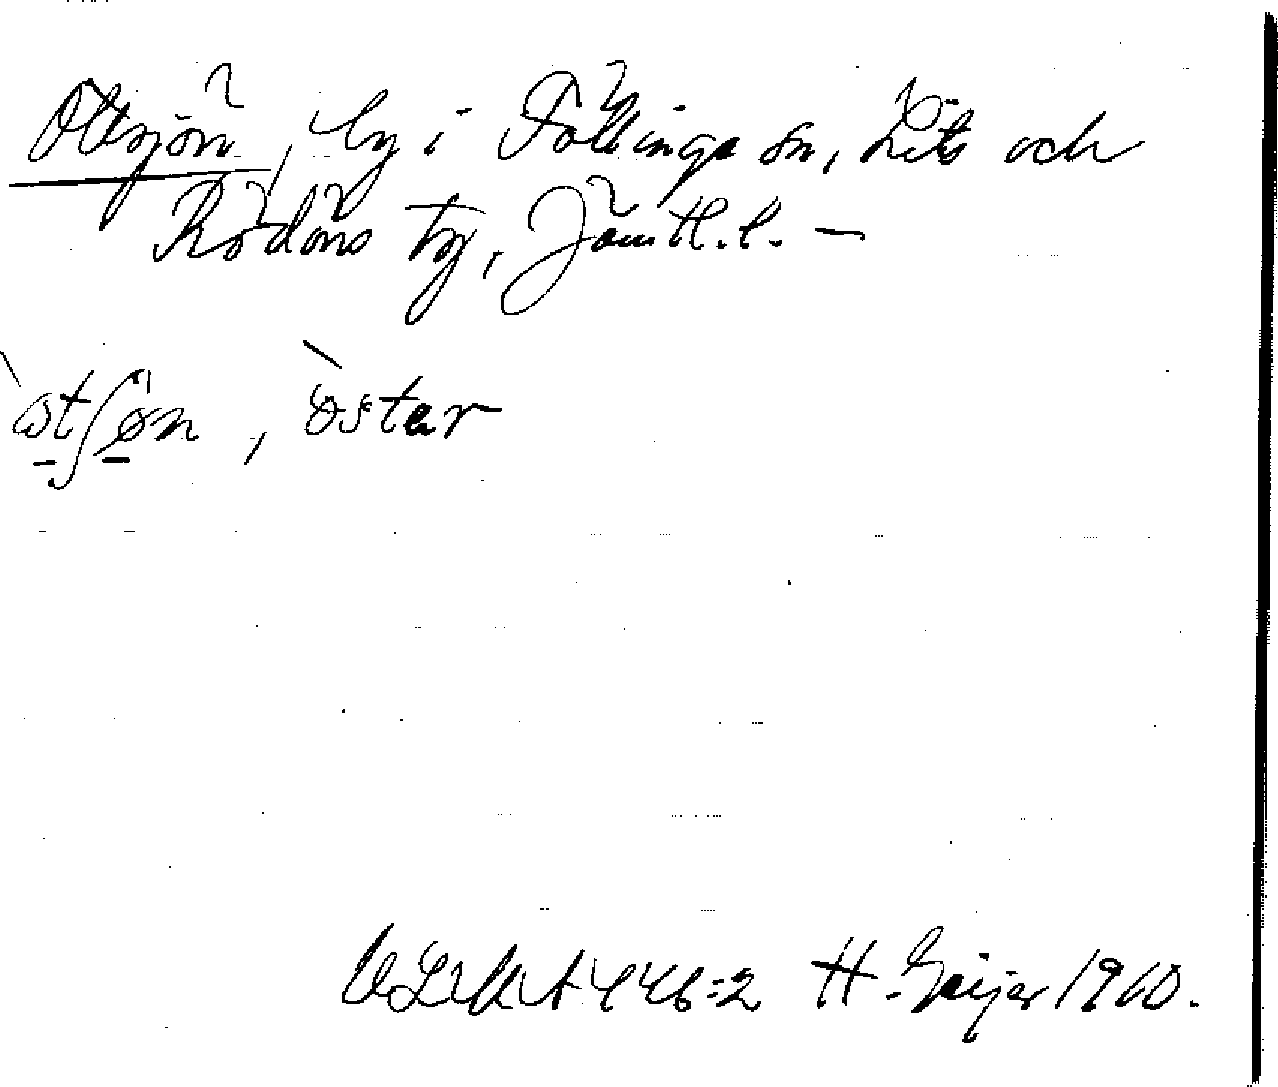 Ottsjön, by i Föllinge sn, Lits och
Rödöns tg, Jämtl.l. —
òstʃøn, òstər
446:2 H. Geijer 1960.